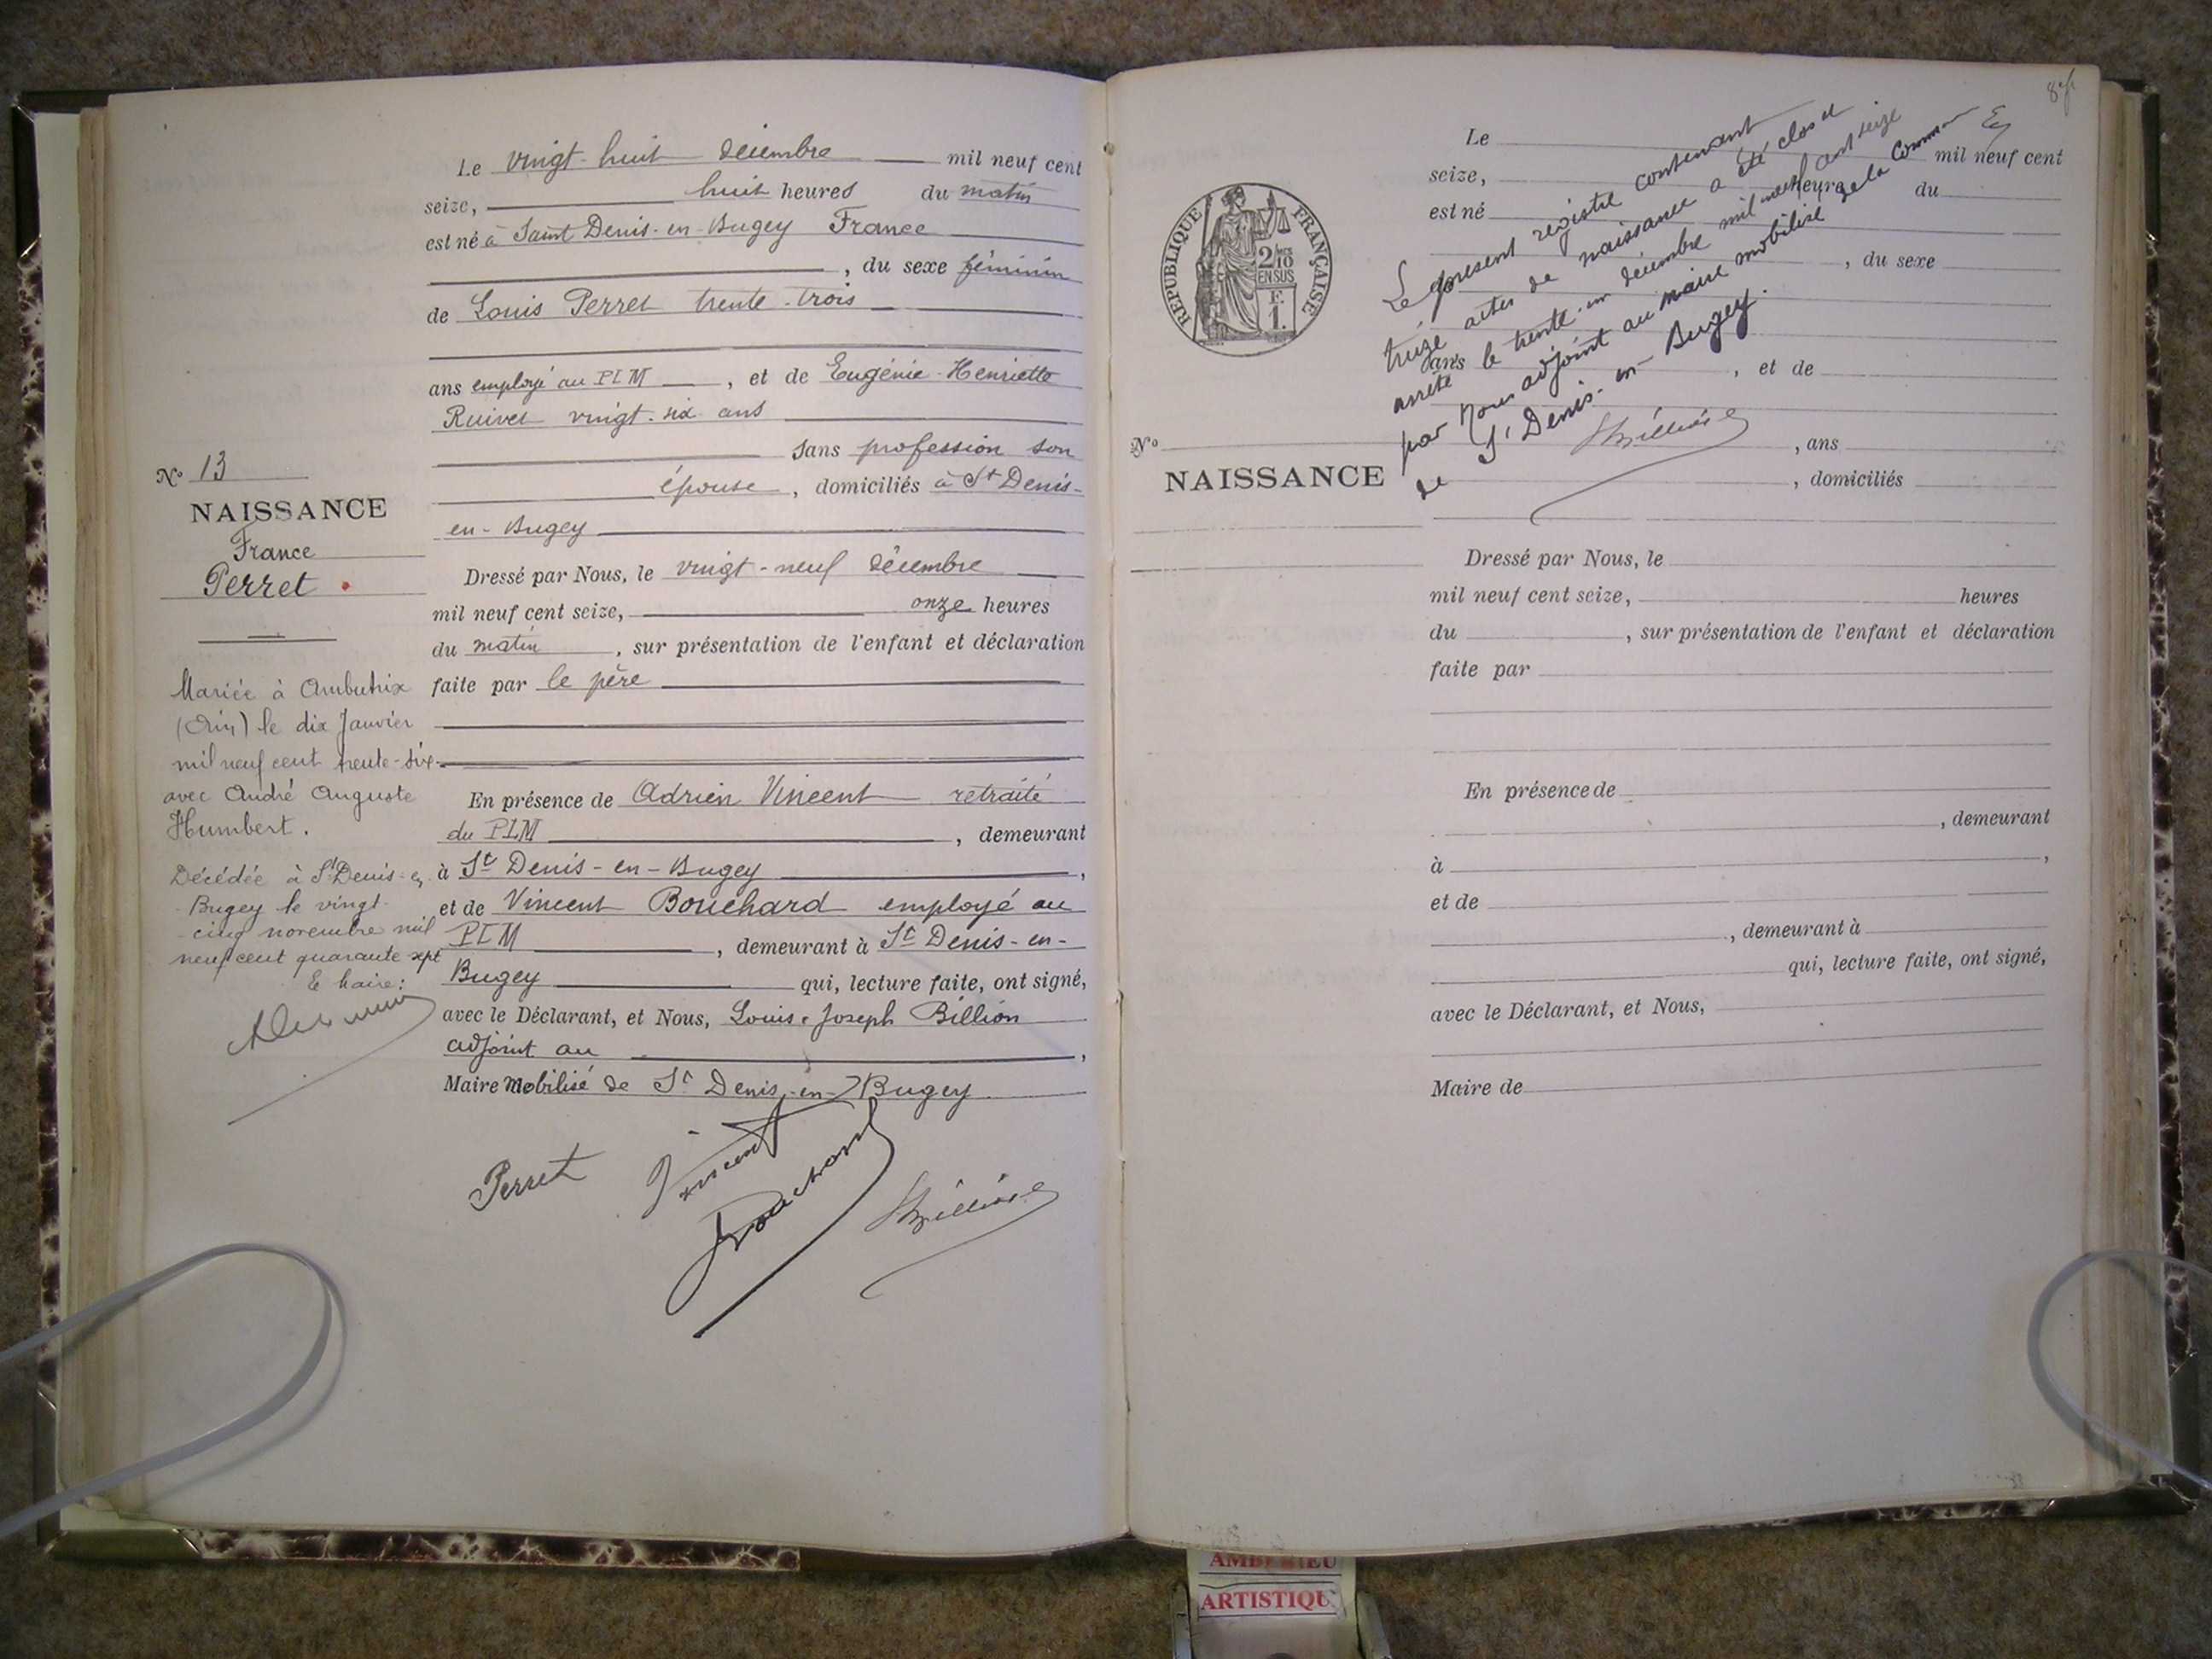 Le vingt-huit décembre mil neuf cent
seize, huit heures du matin
est né à Saint Denis-en-Bugey France
, du sexe féminin
de Louis Perret trente-trois
ans employé au PLM, et de Eugénie-Henriette
Ruivet vingt-six ans
sans profession son
épouse, domiciliés à St Denis-
en-Bugey
Dressé par Nous, le vingt-neuf décembre
mil neuf cent seize, onze heures
du matin, sur présentation de l'enfant et déclaration
faite par le père
En présence de Adrien Vincent retraité
du PLM, demeurant
à St Denis-en-Bugey,
et de Vincent Bouchard employé au
PLM, demeurant à St Denis-en-
Bugey qui, lecture faite, ont signé,
avec le Déclarant, et Nous, Louis-Joseph Billion
adjoint au,
Maire Mobilisé de St Denis-en-Bugey
Perret Vincent
Bouchard Billion
No 13
NAISSANCE
France
Perret
Mariée à Ambutrix
(Ain) le dix Janvier
mil neuf cent trente-six
avec André Auguste
Humbert.
Décédée à St Denis-en
Bugey le vingt-
cinq novembre mil
neuf cent quarante sept
Le Maire:
8
RÉPUBLIQUE FRANÇAISE
2/10
EN SUS
F.
1.
Le mil neuf cent
seize, heures du
est né
, du sexe
ans, et de
, ans
, domiciliés
No
NAISSANCE
Le présent registre contenant
treize actes de naissance a été clos et
arrêté le trente-un décembre mil neuf cent seize
par Nous adjoint au maire mobilisé de la commune
de St Denis-en-Bugey.
Billion
Dressé par Nous, le
mil neuf cent seize, heures
du, sur présentation de l'enfant et déclaration
faite par
En présence de
, demeurant
à,
et de
, demeurant à
qui, lecture faite, ont signé,
avec le Déclarant, et Nous,
Maire de
AMBERIEU
ARTISTIQU